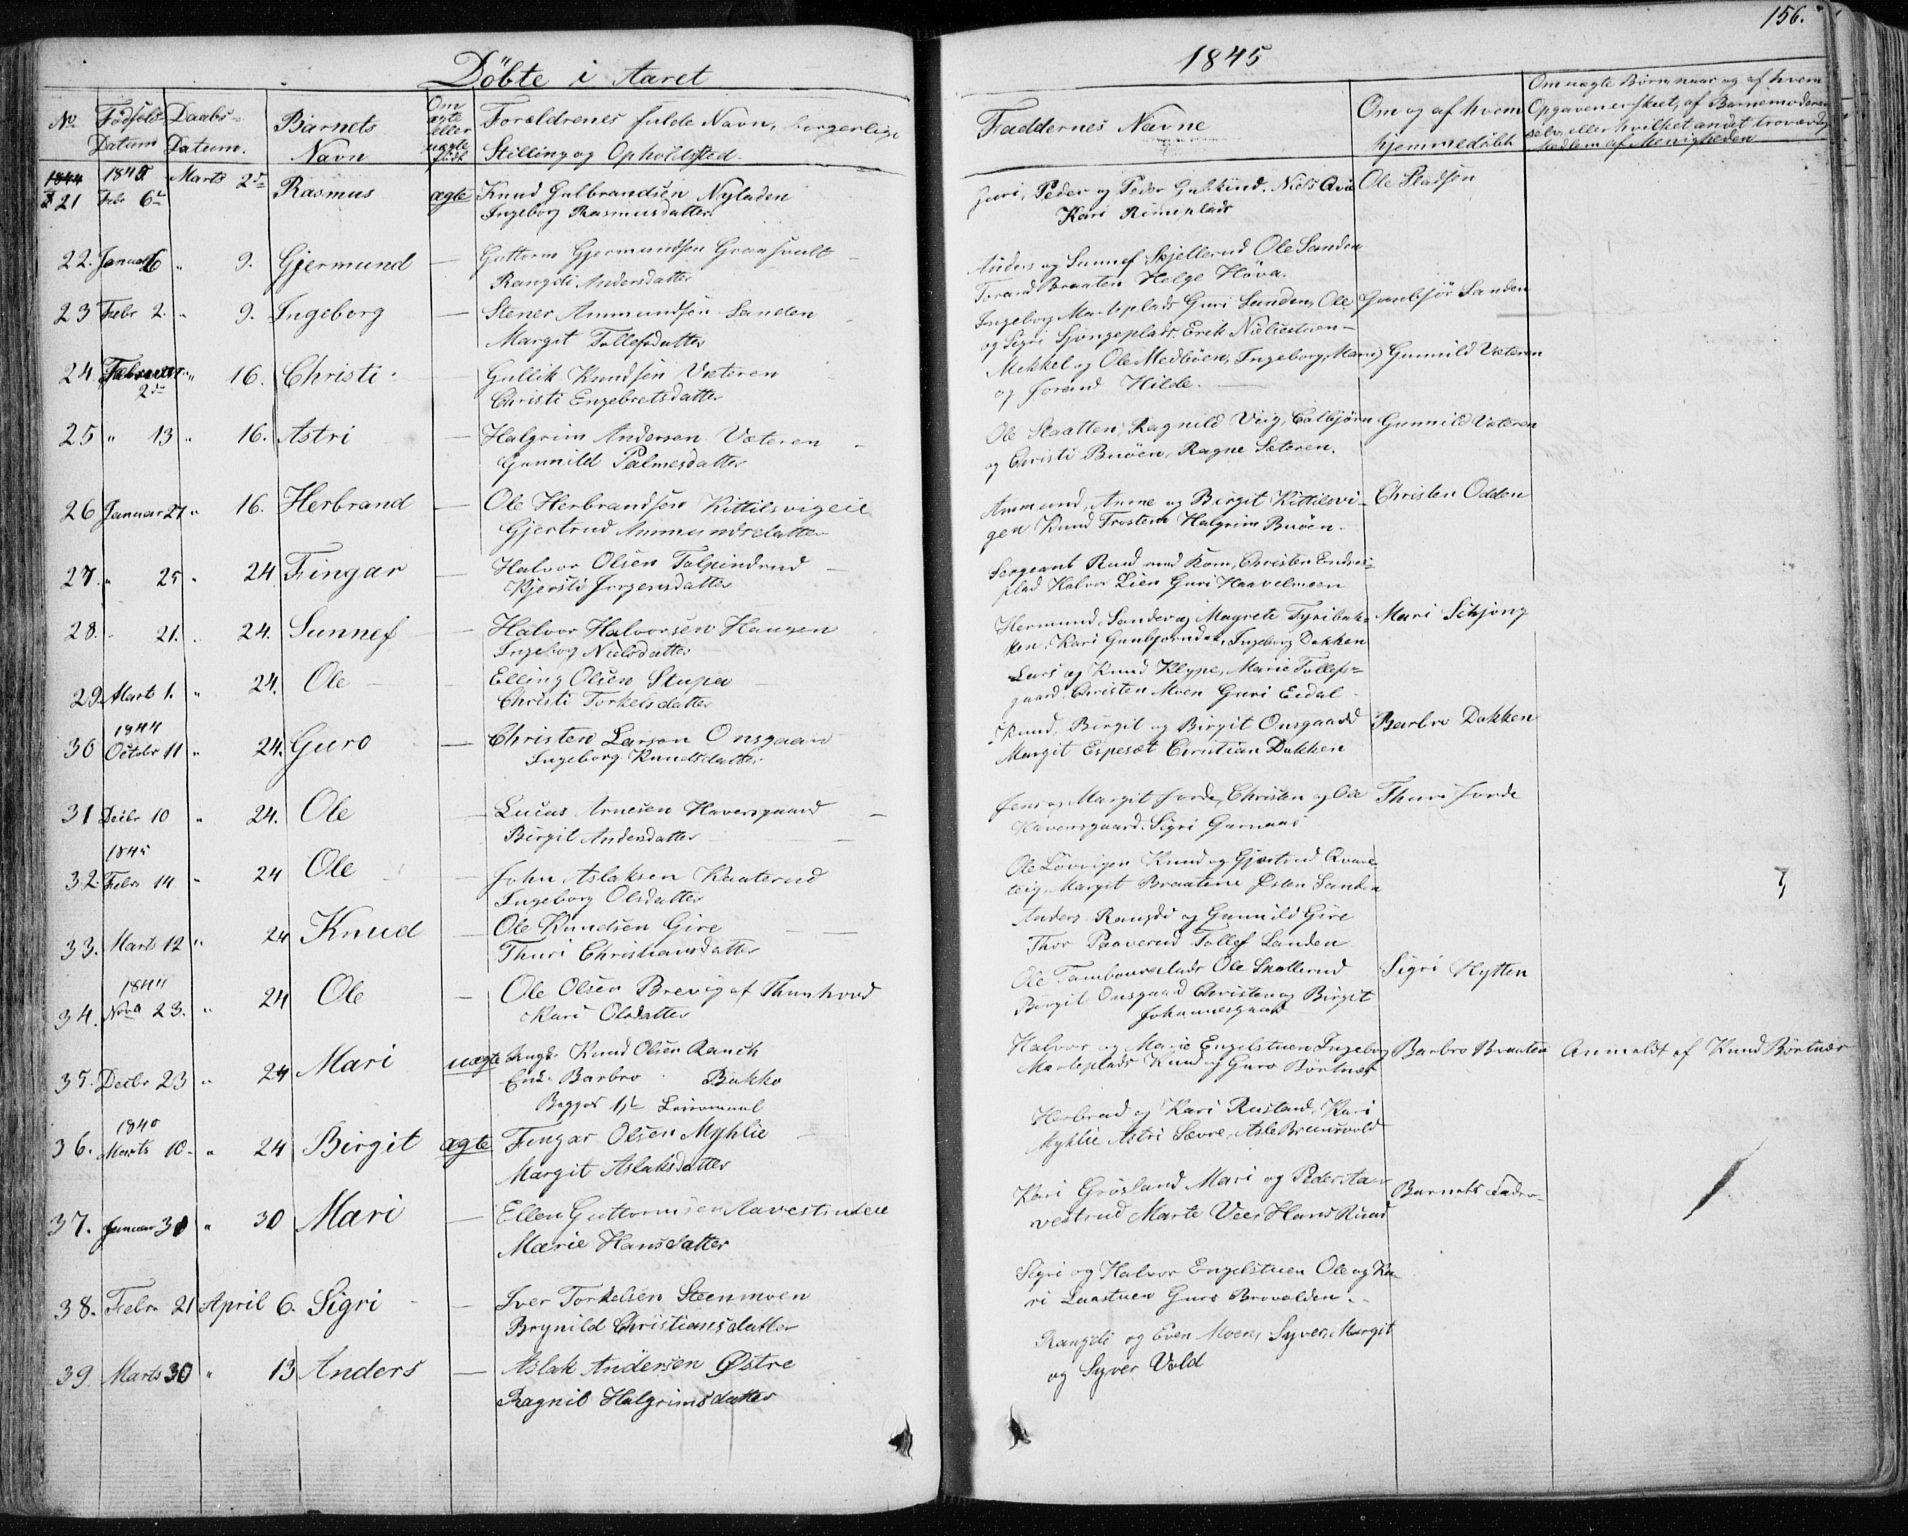 156.
Döbte i Aaret
1845
No
Födsels Datum
Daabs- Datum.
Barnets Navn
Om ægte eller uægte födt
Forældrenes fulde Navn, borgerlige
Stilling og Opholdsted.
Faddernes Navne
Om og af hvem
hjemmedöbt
Om uægte Börn, naar og af hvem
Opgaven er skeet, af Barnemoderen
selv, eller hvilket andet troværdig
Medlem af Menigheden
1844 1845
21 Febr 6te Marts 2de Rasmus ægte Knud Gulbrandsen Nyladen
Ingeborg Rasmusdatter
Guri, Peder og Peder Niels Ole
Kari plads
22. Januar 6 " 9. Gjermund — Guttorm Gjermundsen
Rangdi Andersdatter
Anders og Sunnef Skjellerud Ole Sanden
Braaten Helge Höva.
23 Febr 2. " 9. Ingeborg — Stener Ammundsen Sanden
Margit Tollefsdatter
Ingeborg plads Guri Sanden, Ole Gunbjör Sanden
og Sigri plads Erik
24 Februar 2de " 16. Christi — Gullik Knudsen Væteren
Christi Engebretsdatter
Mikkel og Ole Medböen, Ingeborg, Mari Gunnild Væteren
og Jorand Hilde.
25 " 13 " 16. Astri — Halgrim Andersen Væteren
Gunnild Palmesdatter
Ole Slaatten, Ragnild Veig, Gunnild Væteren
og Christi Buöen, Ragne Seteren.
26 Januar 27 " 16. Herbrand — Ole Herbrandsen Kittilsvigen
Gjertrud Ammundsdatter
Ammund, Anne og Birgit Kittilsvi- Christen Odden
gen Knud Halgrim Buöen.
27. " 25 " 24 Fingar — Halvor Olsen
Kjersti Jörgensdatter
Sergeant Ruud med Kone, Christen
plad Halvor Lien Guri
28. " 21. " 24. Sunnef — Halvor Halvorsen Haugen
Ingeborg Nielsdatter
Hermund, Sander og Magrete Mari Schjöng
Kari Ingeborg Dokken
29. Marts 1. " 24. Ole — Elling Olsen Stupen
Christi Torkelsdatter
Lars og Knud Klype, Marie Tollefs-
gaard, Christen Moen Guri Eidal
1844
30 Octobr 11 " 24. Guro — Christen Larsen Onsgaard
Ingeborg Knudsdatter
Knud, Birgit og Birgit Onsgaard Barbro Dokken
Margit Espeset Christian Dokken
31 Decbr 10 " 24. Ole — Lucas Arnesen Haversgaard
Birgit Andersdatter
Jens og Margit Jorde, Christen og Ole Thuri Jorde
Haversgaard. Sigri
1845
32 Febr 14 " 24 Ole — John Aslaksen
Ingeborg Olsdatter
Ole Lövvigen Knud og Gjertrud
teig, Margit Braatene Östen Sanden
33. Marts 12 " 24 Knud — Ole Knudsen Gire
Thuri Christiansdatter
Anders Rangdi og Gunnild Gire
Thor Tollef Sanden
1844
34. Novb 23. " 24 Ole — Ole Olsen Brevig af Thunhovd
Kari Olsdatter
Ole plads Ole Skollerud Sigri Hytten
Birgit Onsgaard Christen og Birgit
Johannesgaard
35. Decbr 23 " 24 Mari uægte Ungk. Knud Olsen
Enk. Barbro Bakko
Begges 1ste Leiermaal
Halvor og Marie Engelstuen Ingeborg Barbro Braaten Anmeldt af Knud Börtnæs
plads Knud og Guro Börtnæs
1845
36. Marts 10. " 24 Birgit ægte Fingar Olsen Myhlie
Margit Aslaksdatter
Herbrad og Kari Rustand, Kari
Myhlie Astri Sævre, Asle
37. Januar 30 " 30 Mari — Ellen Guttormsen Aavestruden
Marie Hansdatter
Kari Grösland Mari og Peder Aa- Barnets Fader
vestrud Marte Vee, Hans Ruud
38. Febr 21 April 6. Sigri — Iver Torkelsen Steenmoen
Brynild Christiansdatter
Sigri og Halvor Engelstuen Ole og Ka-
ri Laastuen Guro Brovolden.
39. Marts 30 " 13 Anders — Aslak Andersen Östre
Ragnil Halgrimsdatter
Rangdi og Even Moen, Syver, Margit
og Syver Vold